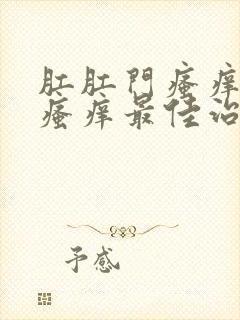 肛肛門瘙痒
瘙痒最佳治
予感